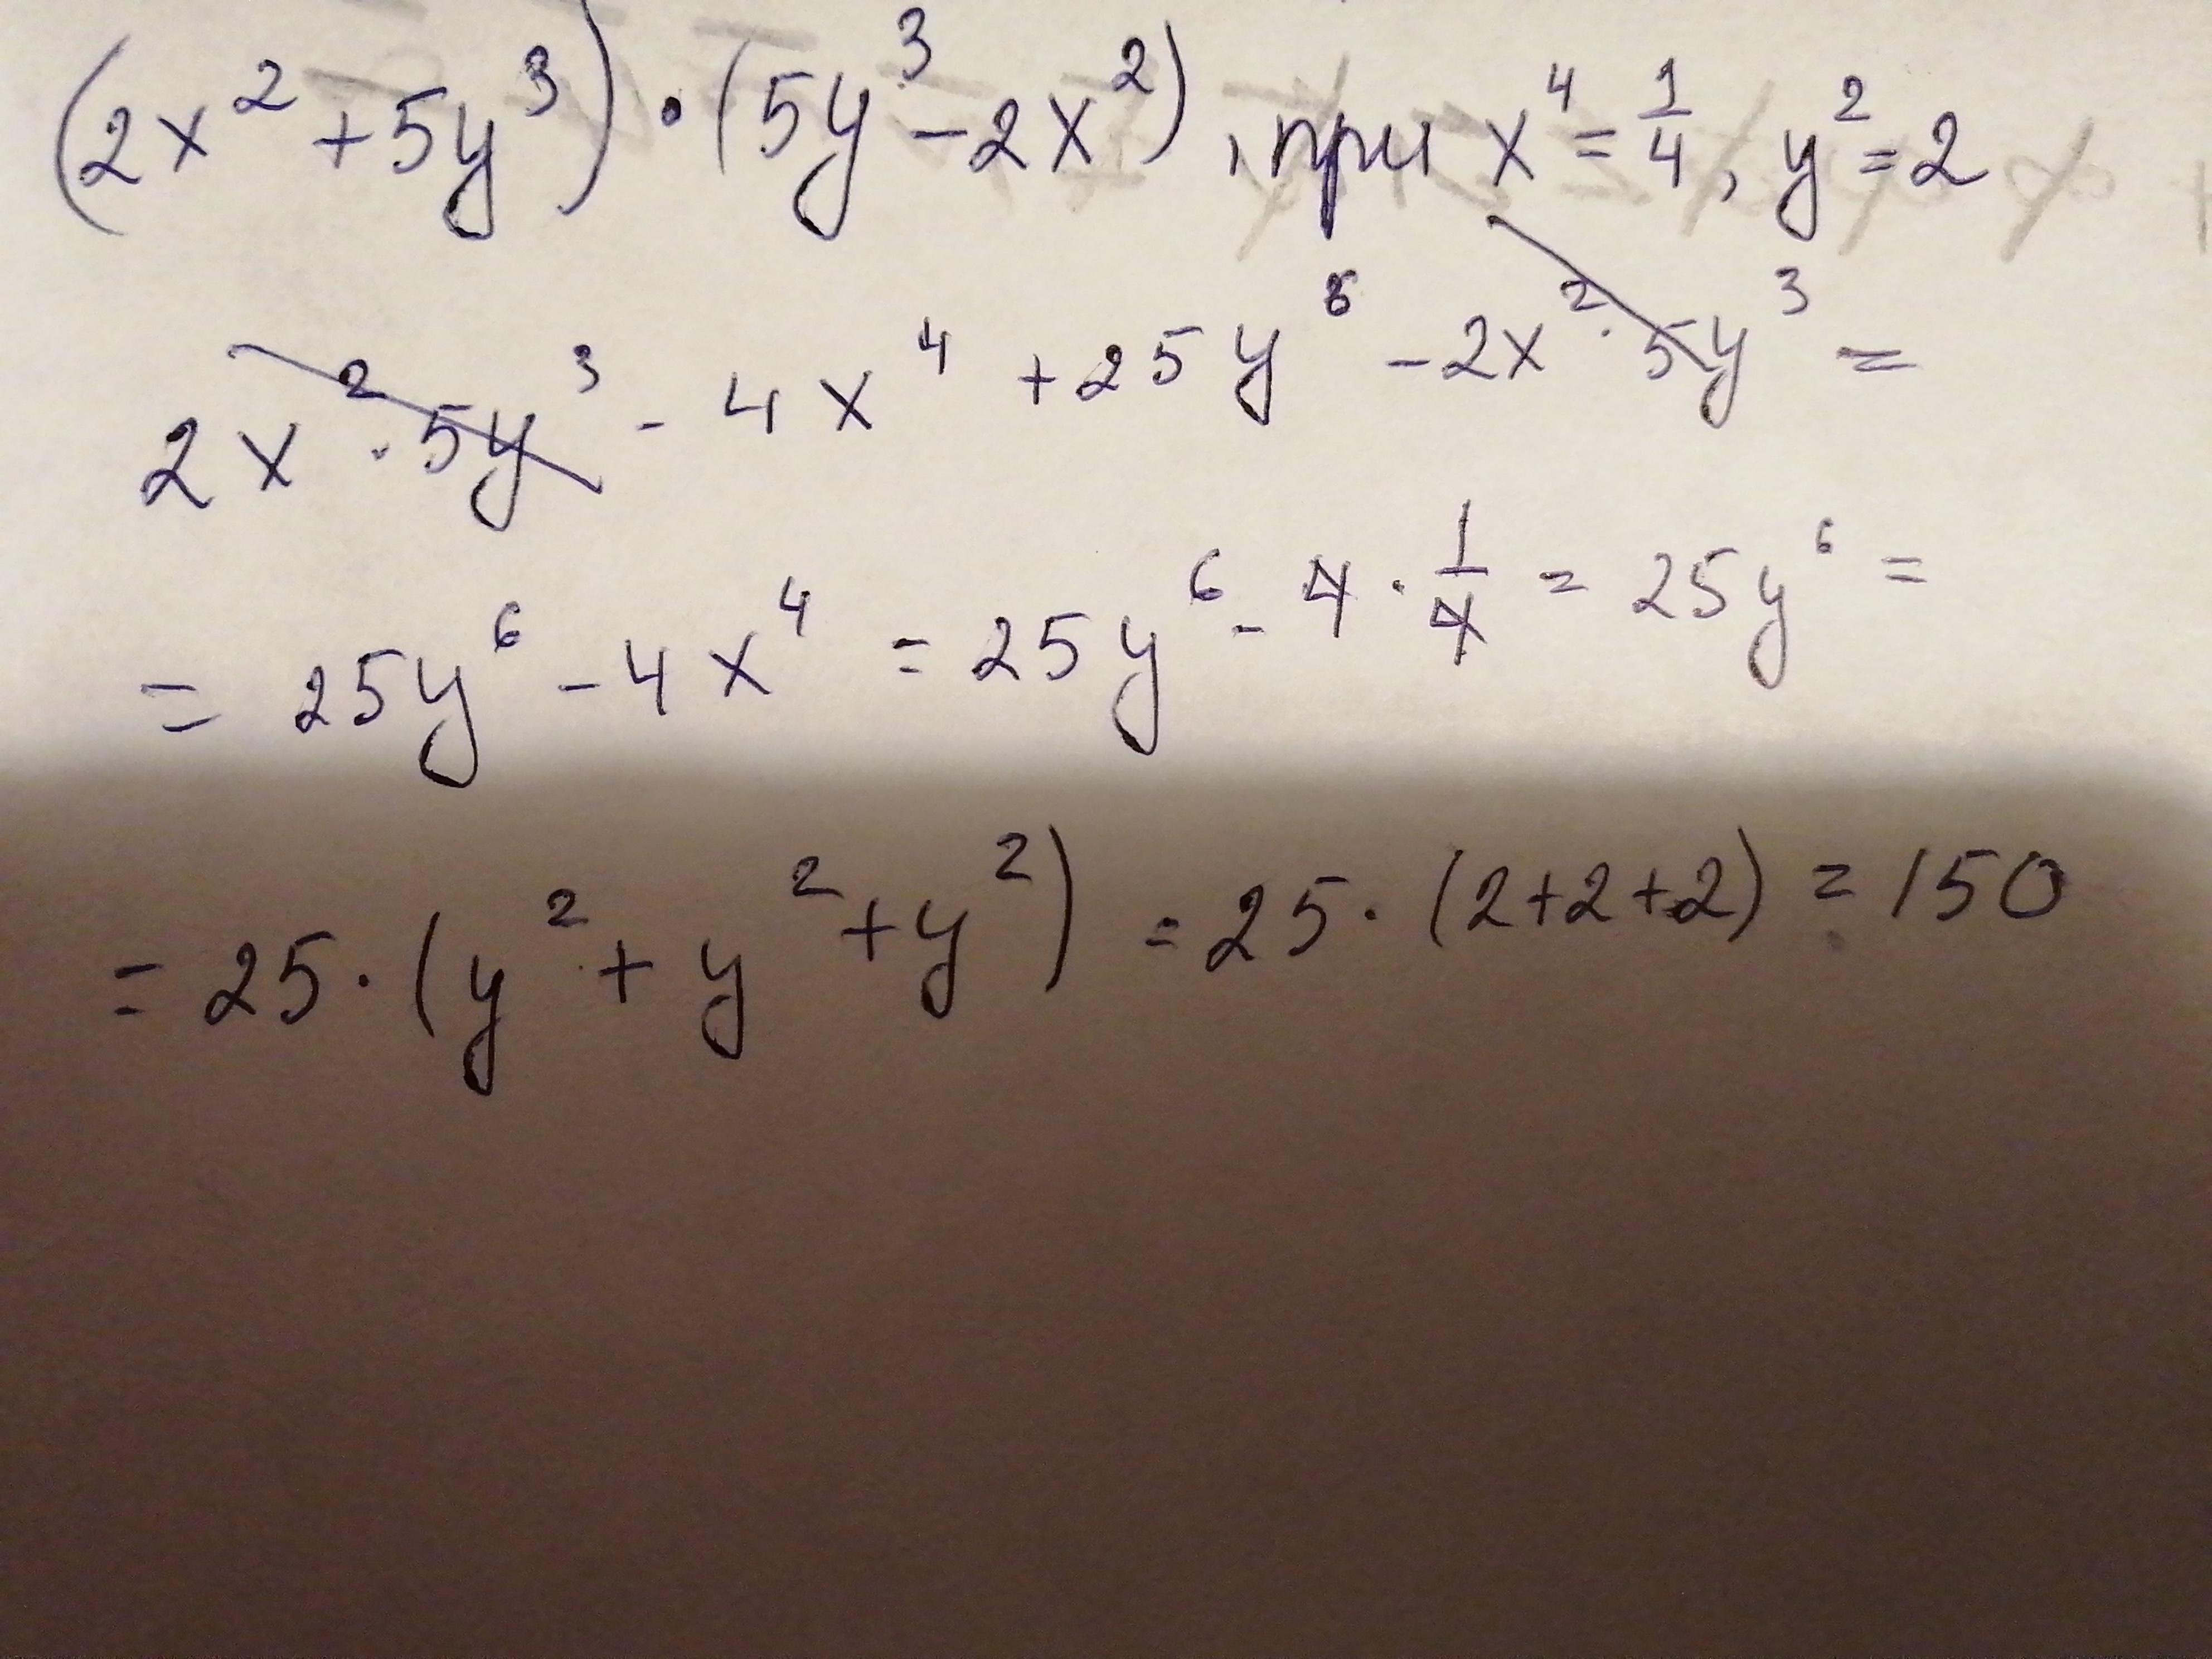 (2x² + 5y³) · (5y³ - 2x²), при x⁴ = 1/4, y² = 2
2x² · 5y³ - 4x⁴ + 25y⁶ - 2x² · 5y³ =
= 25y⁶ - 4x⁴ = 25y⁶ - 4 · 1/4 = 25y⁶ =
= 25 · (y² + y² + y²) = 25 · (2+2+2) = 150